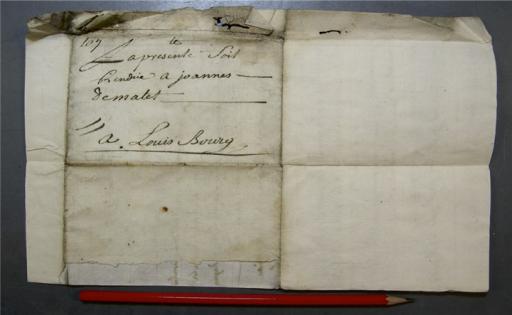 107
Lapresente Soit
Rendue a joannes
Demalet
a Louis Bourg